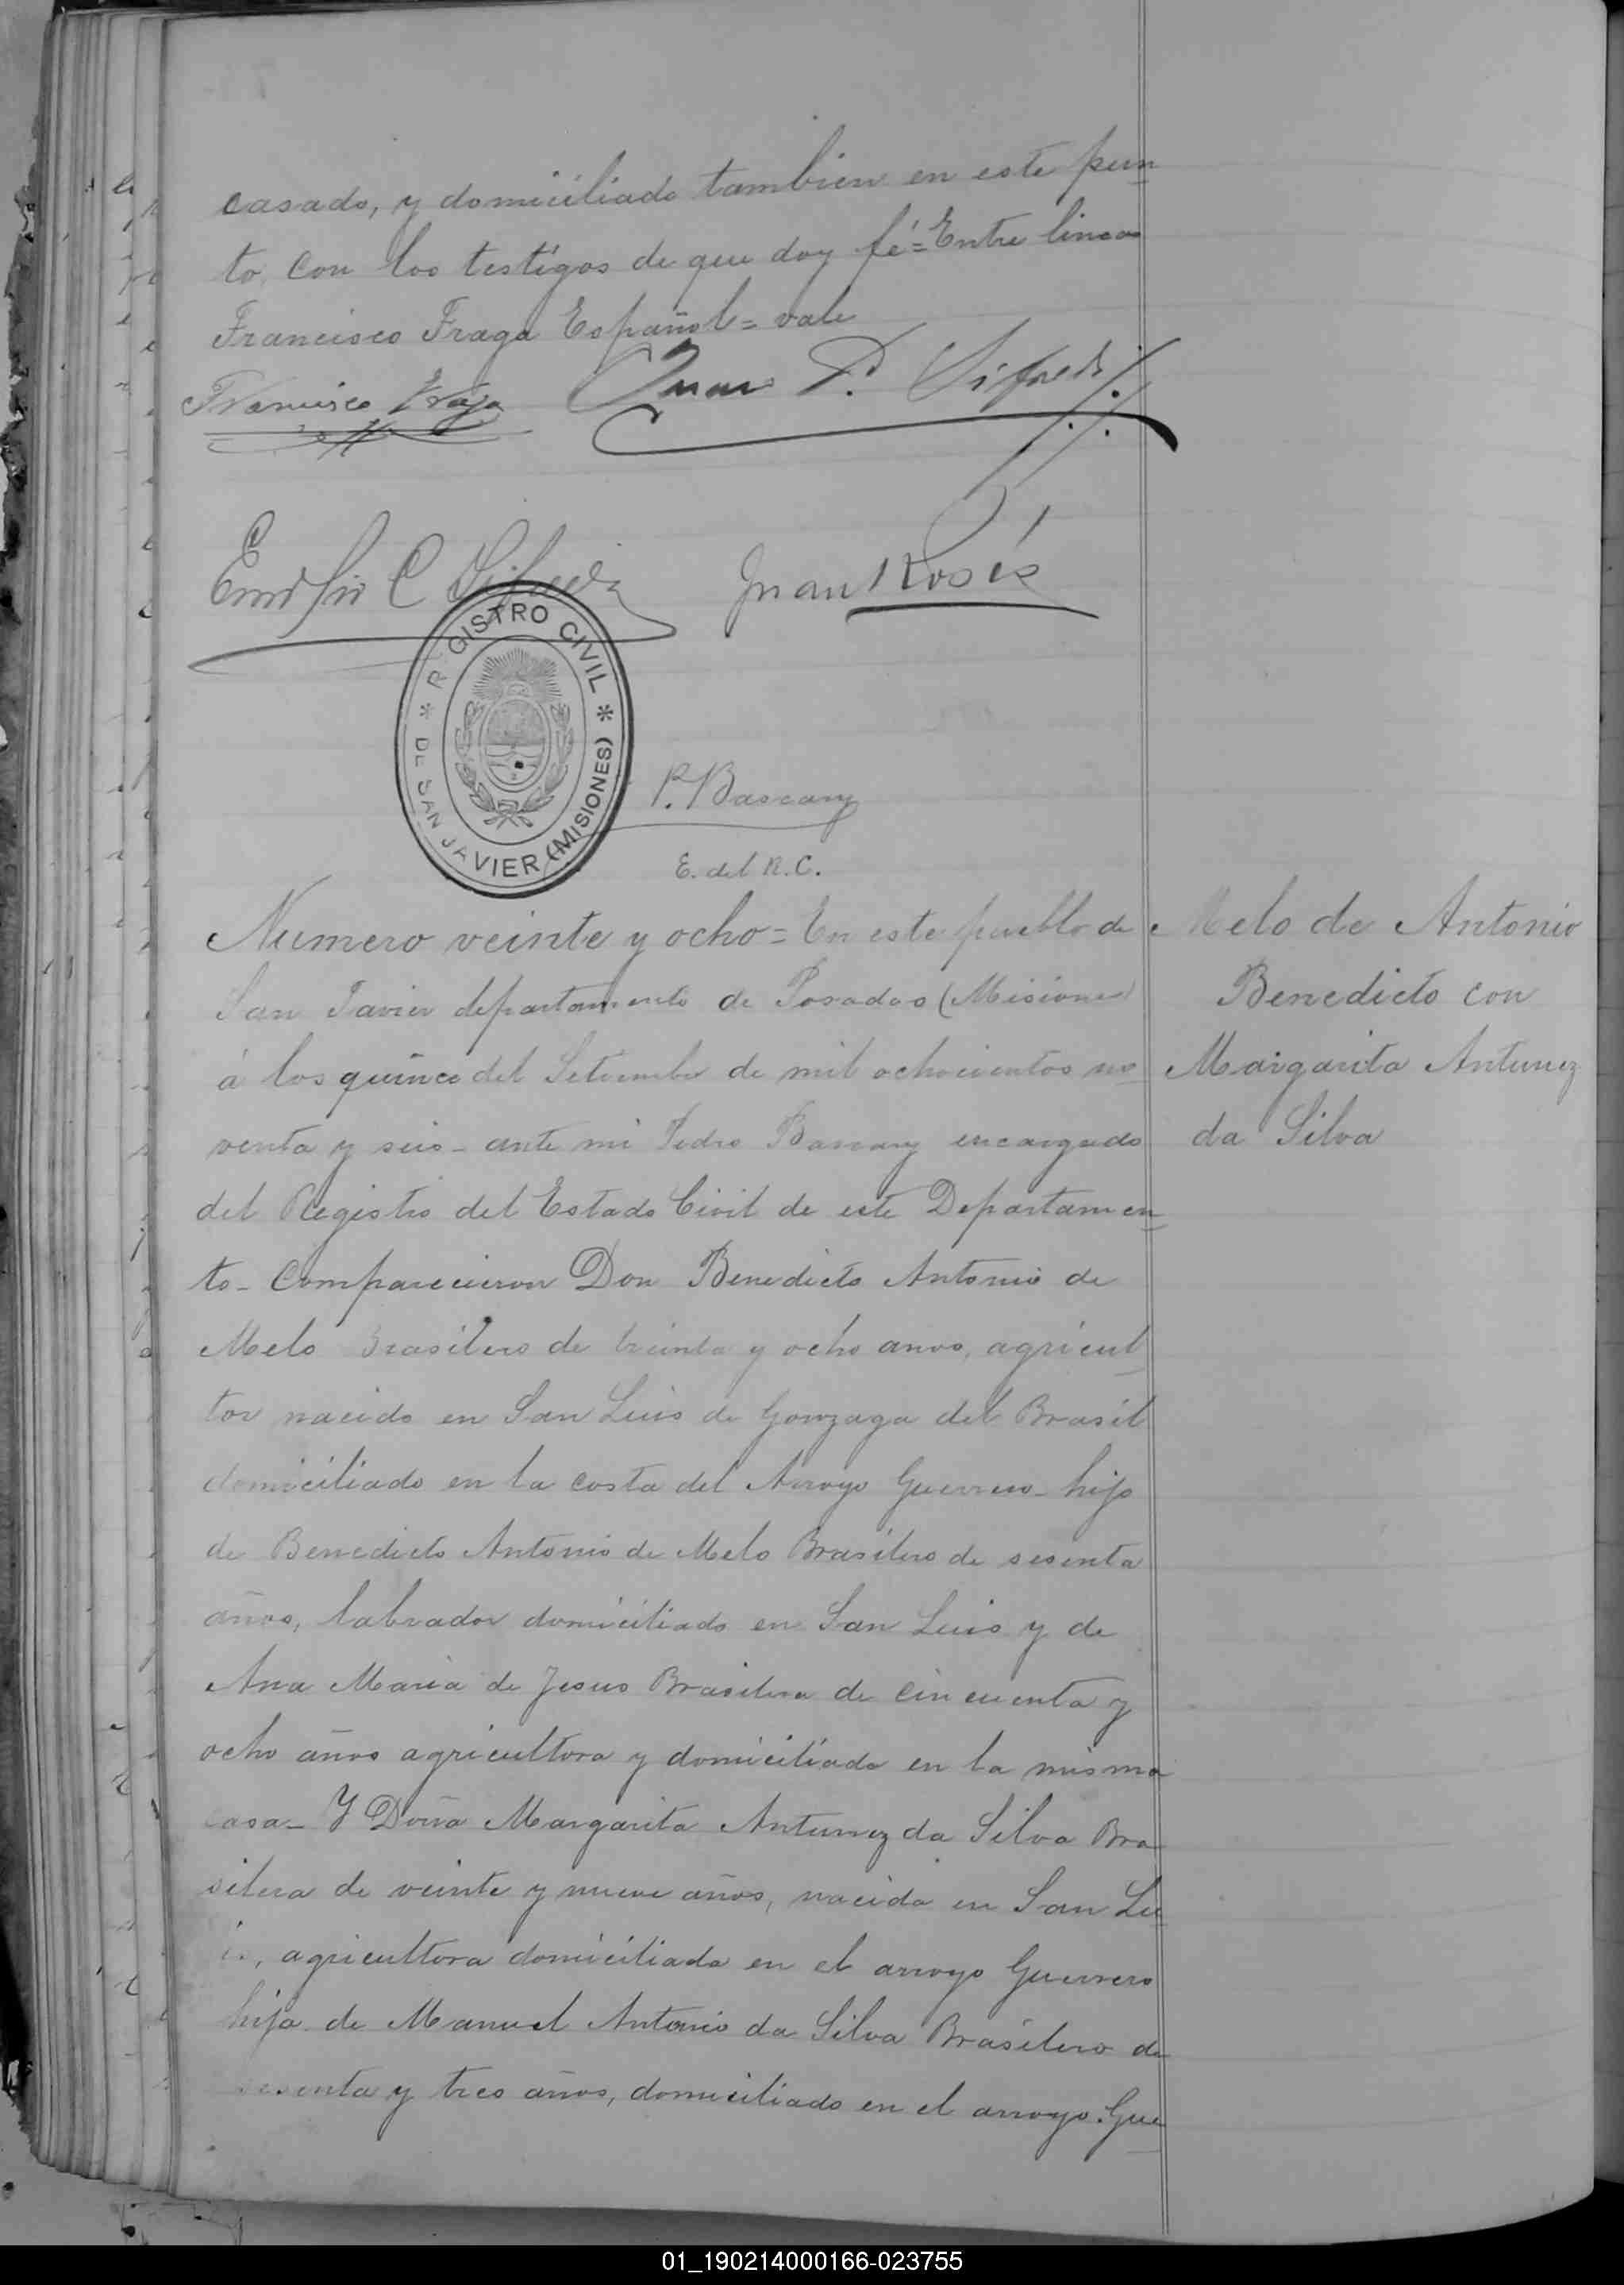 casado, y domiciliado tambien en este pun
to, con los testigos de que doy fé = Entre lineas
Francisco Fraga Español = vale
Francisco Fraga Juan P. Sifredi
Emilio C Sifredi Juan Rosés
REGISTRO CIVIL
DE SAN JAVIER (MISIONES)
P. Bascary
E. del R. C.
Numero veinte y ocho = En este pueblo de
San Javier departamento de Posadas (Misiones)
á los quince del Setiembre de mil ochocientos no
venta y seis - ante mi Pedro Bascary encargado
del Registro del Estado Civil de este Departamen
to - Comparecieron Don Benedicto Antonio de
Melo Brasilero de treinta y ocho anos, agricul
tor nacido en San Luis de Gonzaga del Brasil
domiciliado en la costa del Arroyo Guerrero - hijo
de Benedicto Antonio de Melo Brasilero de sesenta
años, labrador domiciliado en San Luis y de
Ana Maria de Jesus Brasilera de cincuenta y
ocho años agricultora y domiciliada en la misma
casa - Y Doña Margarita Antunez da Silva Bra
silera de veinte y nueve años, nacida en San Lu
is, agricultora domiciliada en el arroyo Guerrero
hija de Manuel Antonio da Silva Brasilero de
sesenta y tres años, domiciliado en el arroyo Gue
Melo de Antonio
Benedicto con
Margarita Antunez
da Silva
01_190214000166-023755